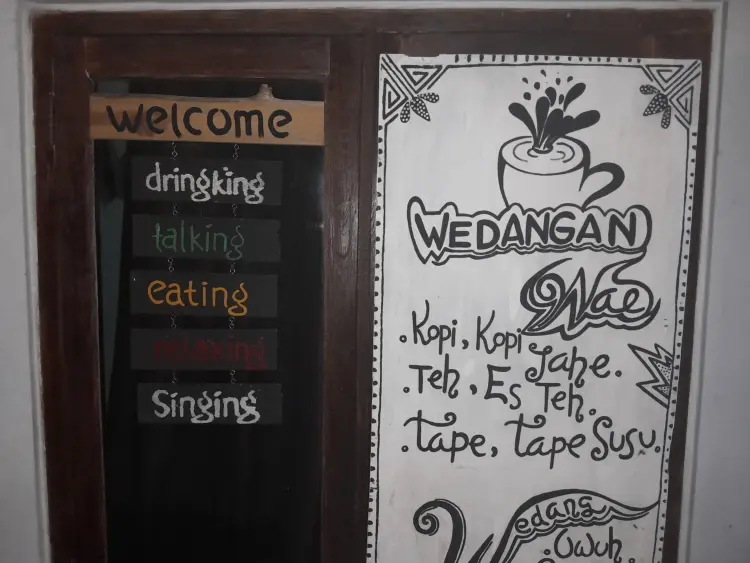 welcome
dringking
talking
eating
relaxing
Singing
WEDANGAN
Wae
.Kopi, Kopi Jahe.
.Teh, Es Teh.
.tape, tape Susu.
Wedang
.Uwuh